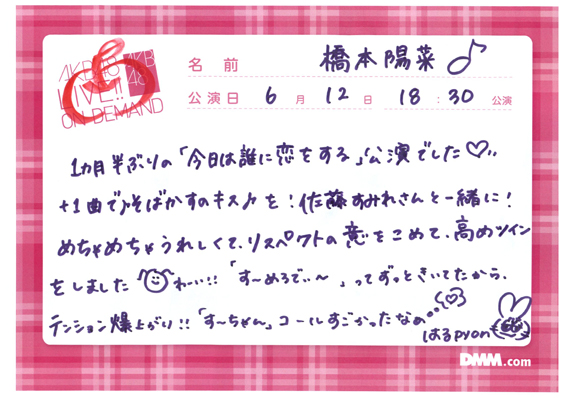 AKB48
LIVE!!
ON DEMAND
AKB
48
名 前 橋本陽菜♪
公演日 6月 12日 18:30 公演
1ヵ月半ぶりの「今日は誰に恋をする」公演でした♡!!
+1曲で♪そばかすのキス♪を!佐藤すみれさんと一緒に!
めちゃめちゃうれしくて、リスペクトの意をこめて、高めツイン
をしました わーい!!「す〜めろでぃ〜」ってずっときいてたから、
テンション爆上がり!!「す〜ちゃん」コールすごかったなぁ
はるpyon
DMM.com